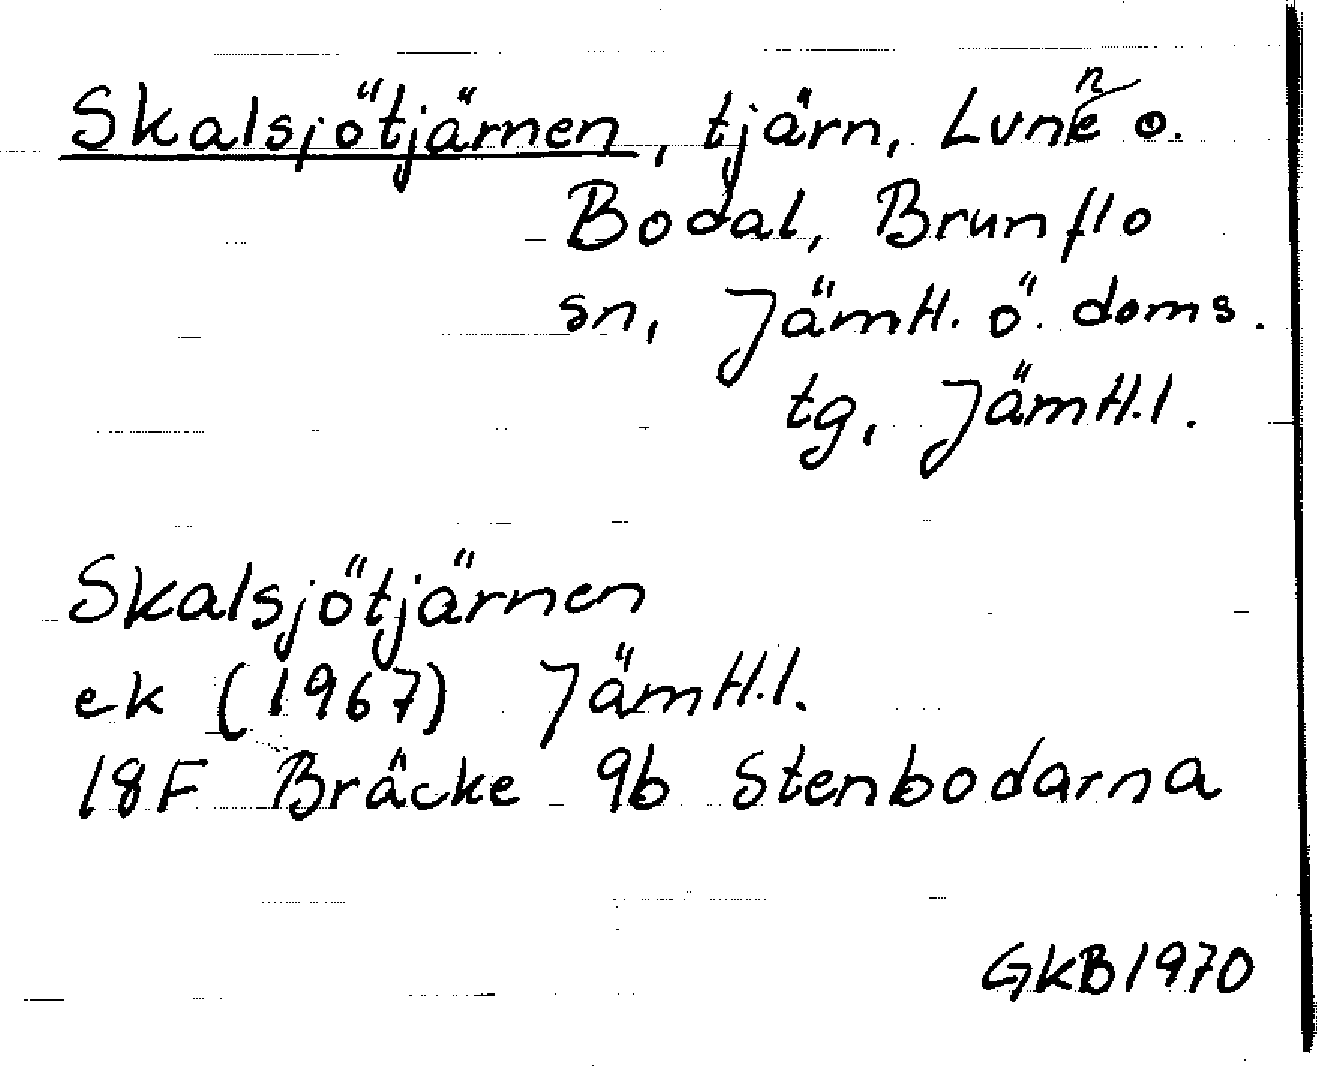 Skalsjötjärnen, tjärn, Lunne o.
Bodal, Brunflo
sn, Jämtl. ö. doms.
tg, Jämtl.l.
Skalsjötjärnen
ek (1967) Jämtl.l.
18F Bräcke 9b Stenbodarna
GKB 1970